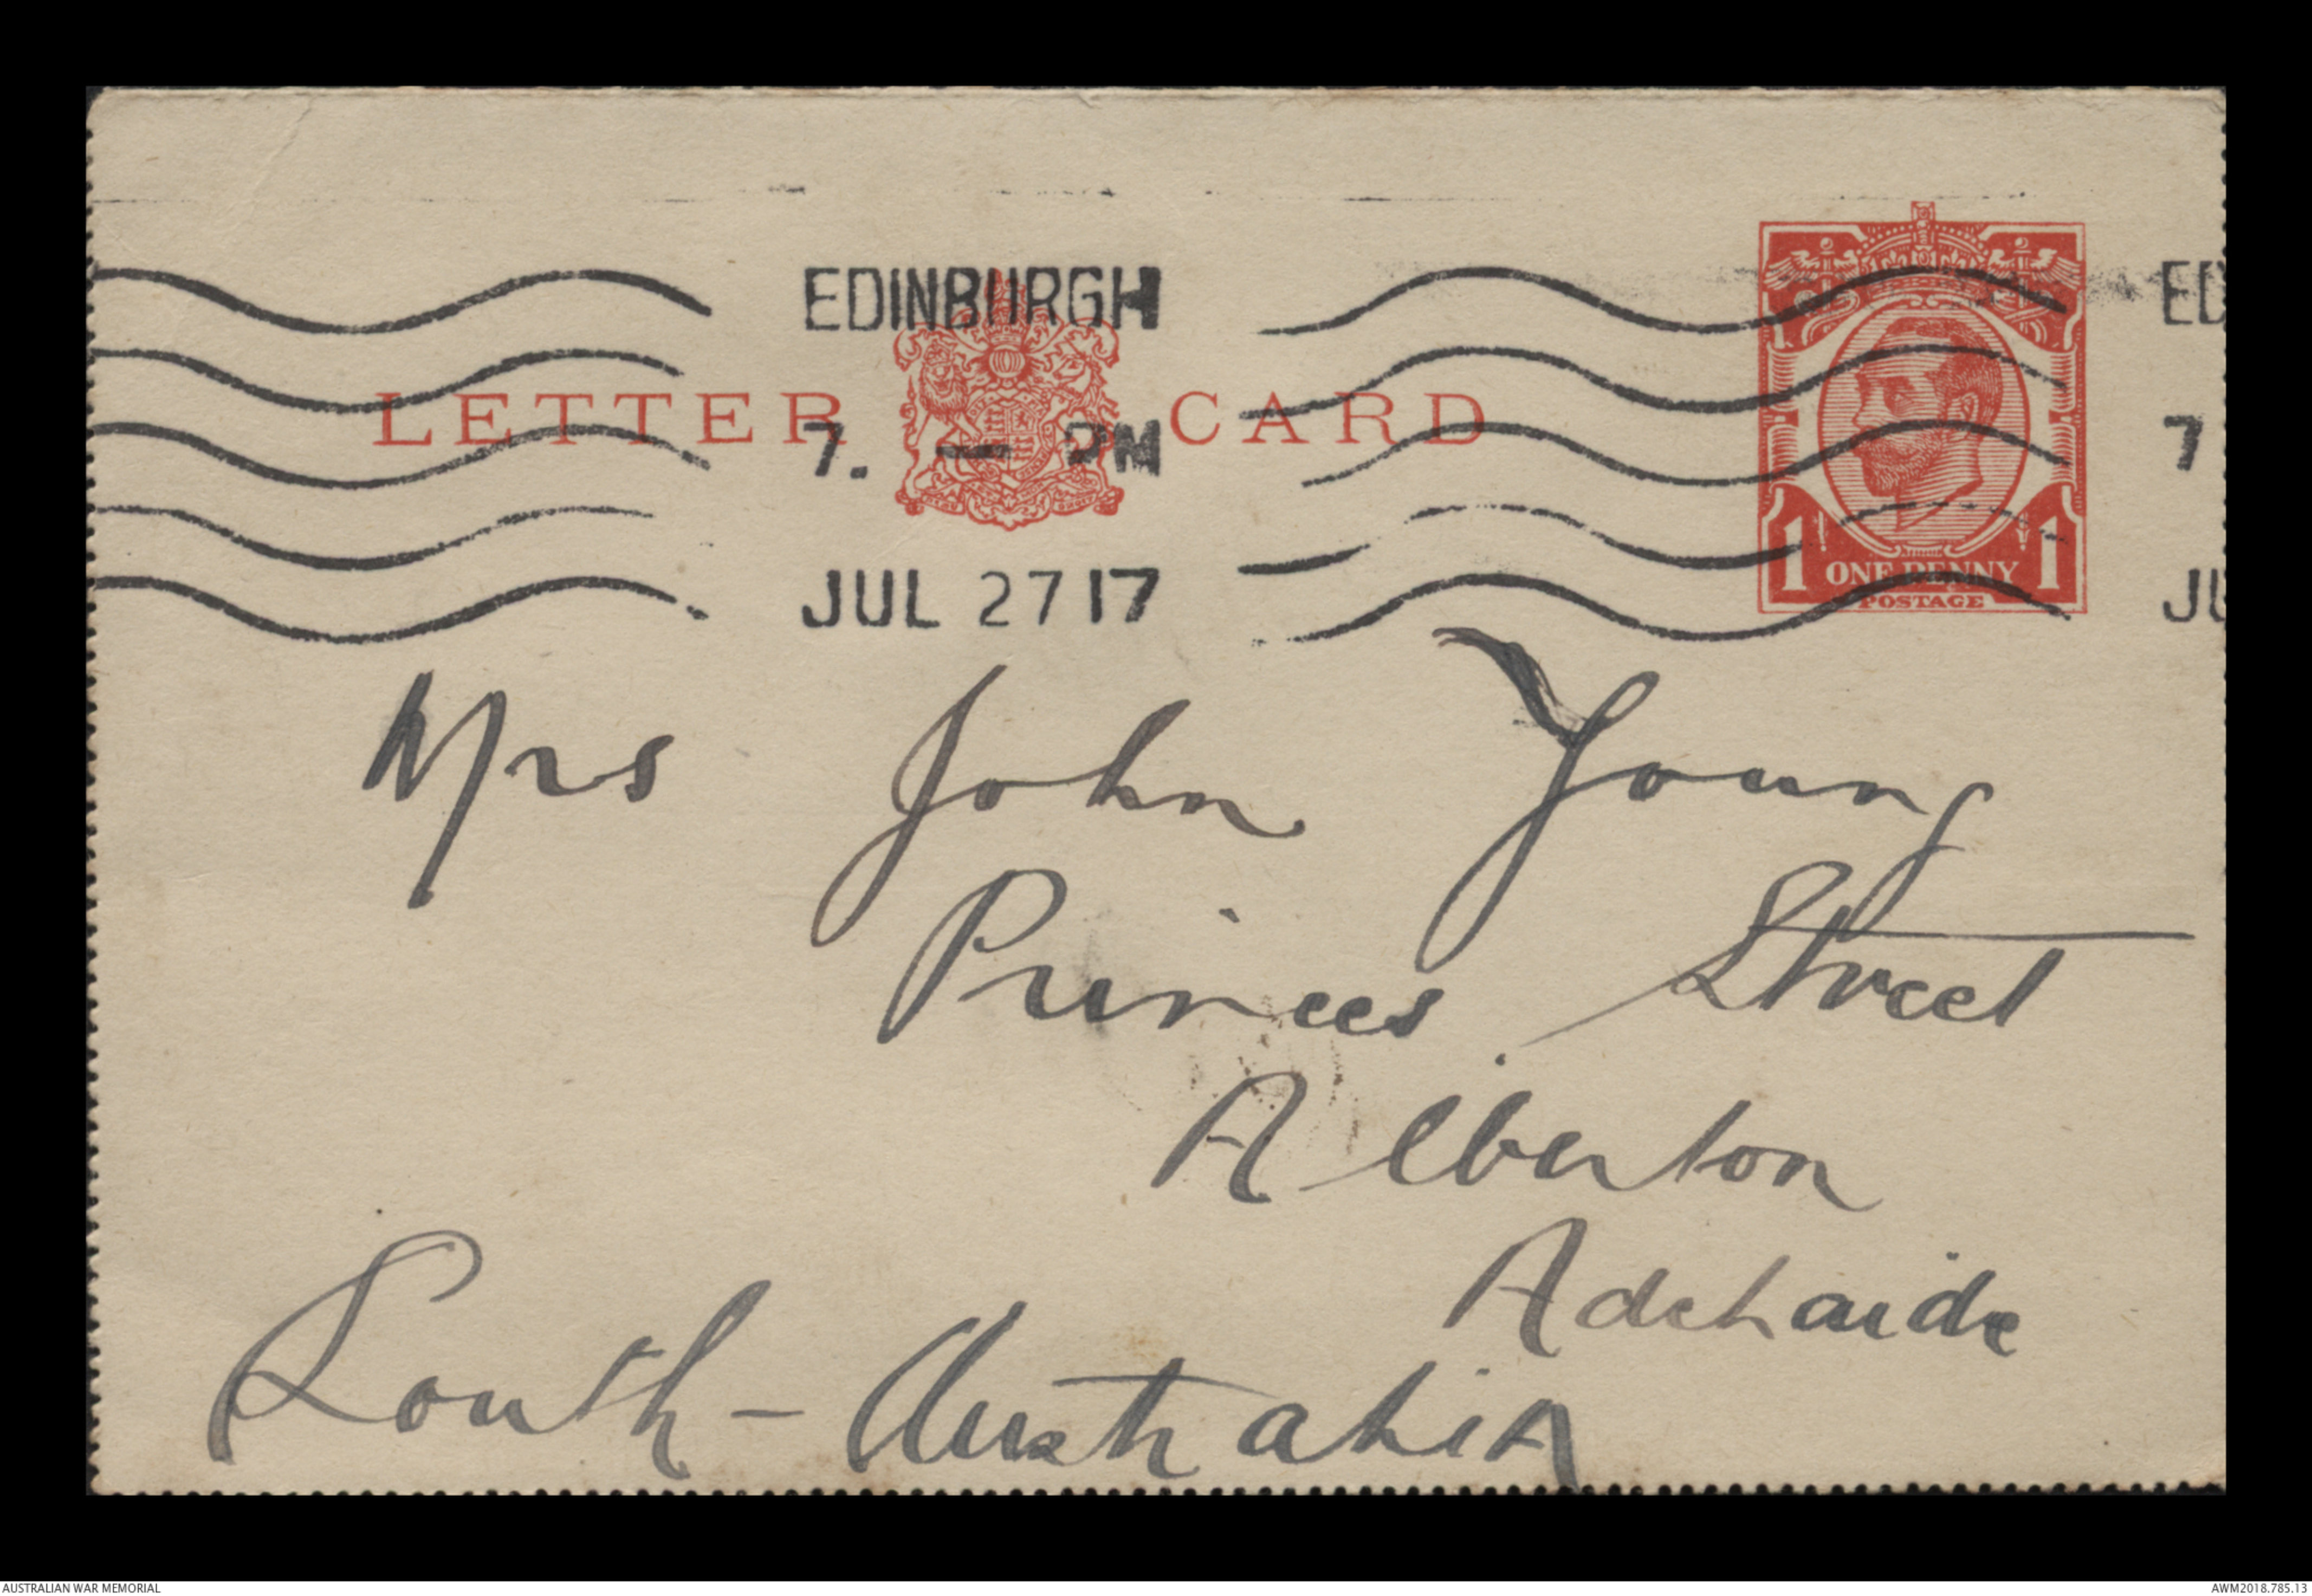 EDINBURGH
ED
LETTER CARD
7. — PM
7
1 ONE PENNY 1
POSTAGE
JUL 27 17
JU
Mrs John Young
Princes Street
Alberton
Adelaide
South - Australia
AUSTRALIAN WAR MEMORIAL
AWM2018.785.13